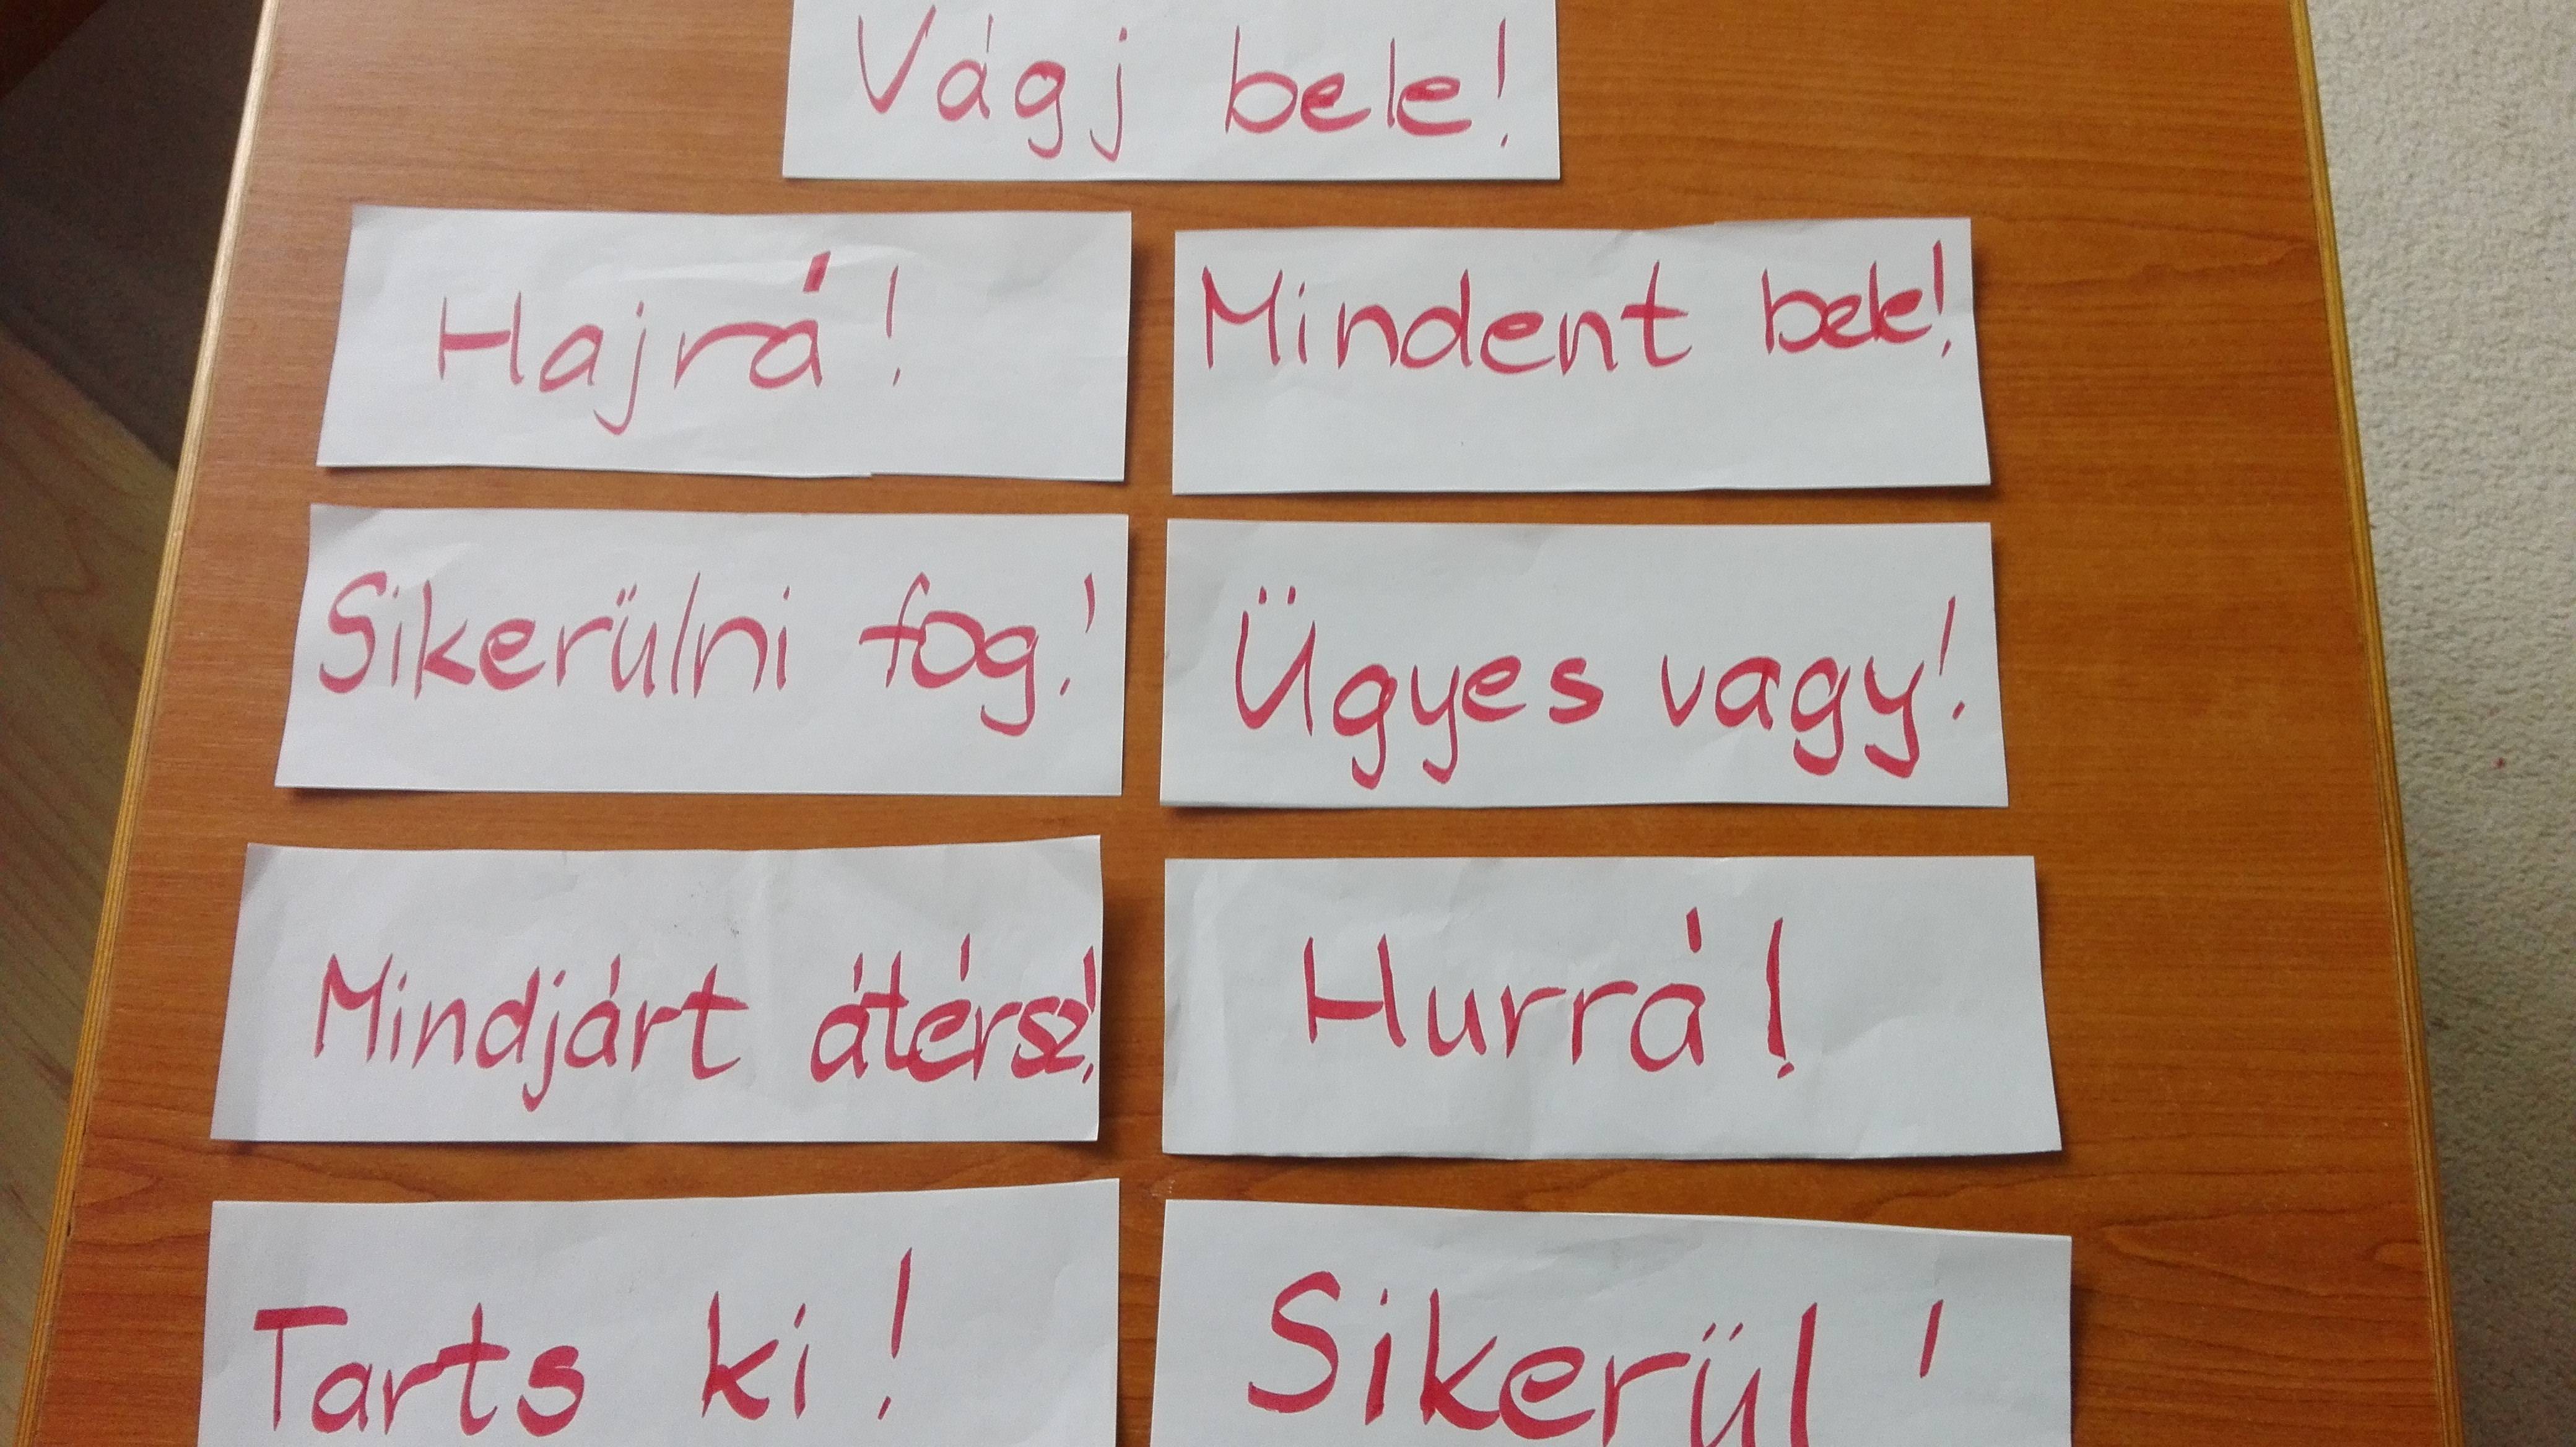 Vágj bele!
Hajrá!
Mindent bele!
Sikerülni fog!
Ügyes vagy!
Mindjárt átérsz!
Hurrá!
Tarts ki!
Sikerül!